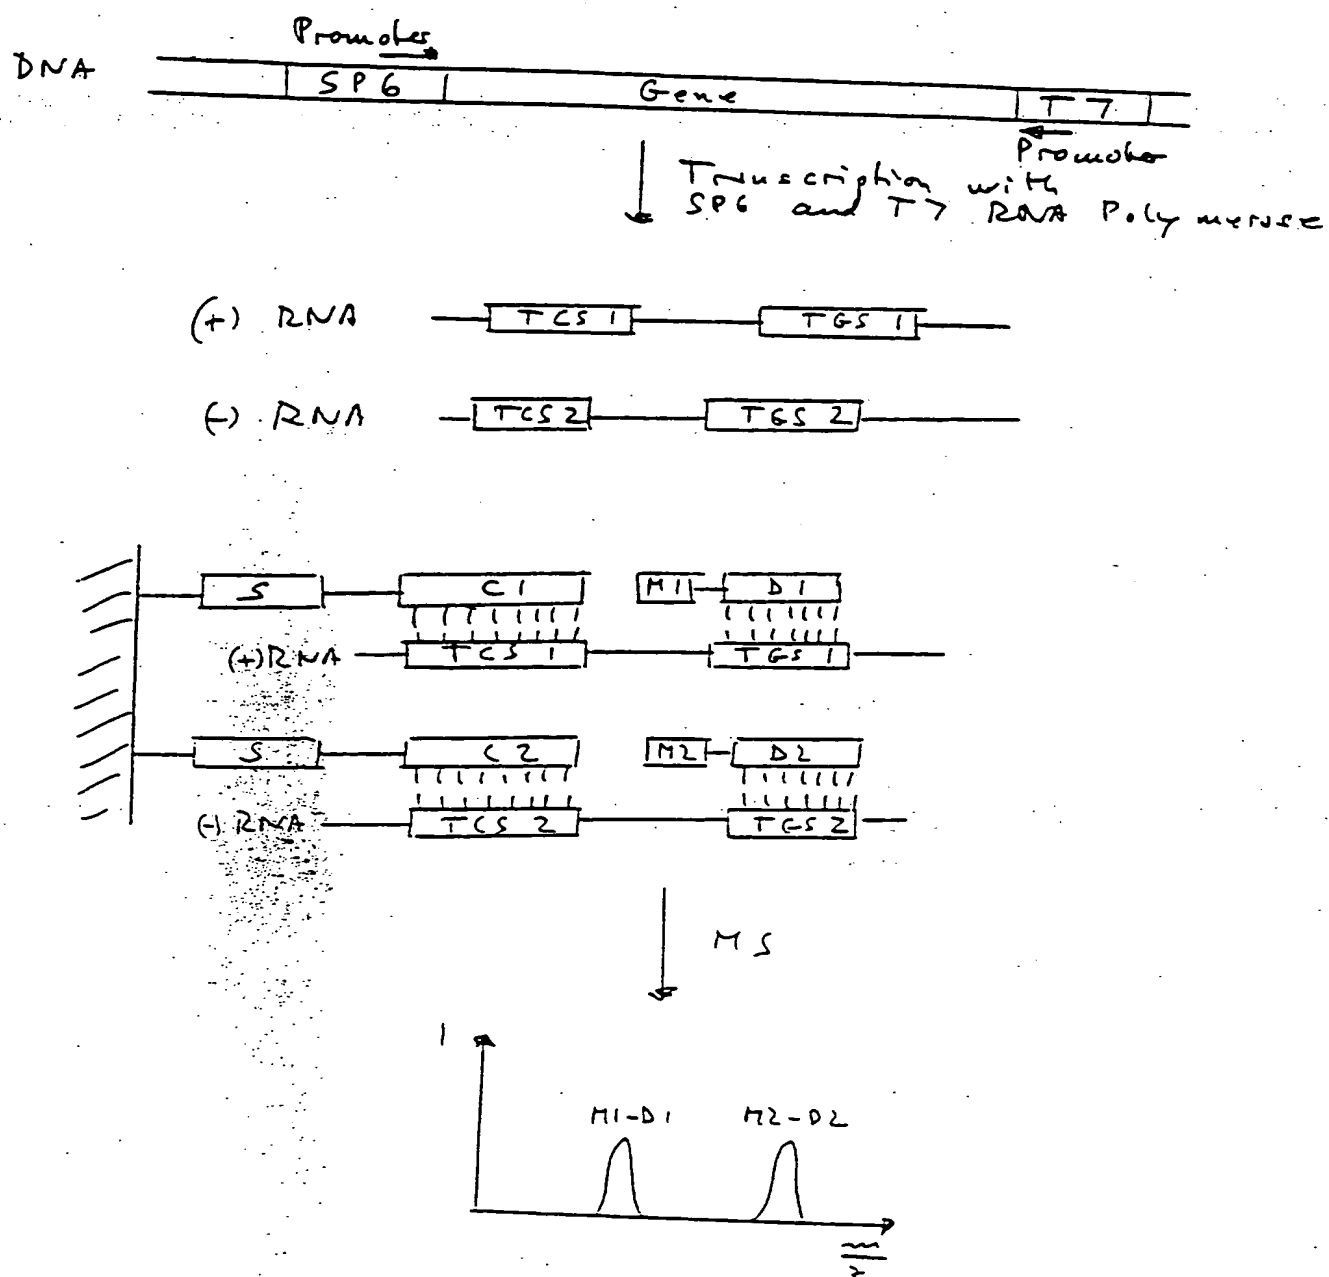 Promoter
DNA
SP6
Gene
T7
Promoter
Transcription with
SP6 and T7 RNA Polymerase
(+) RNA
TCS 1
TGS 1
(-) RNA
TCS 2
TGS 2
S
C1
M1
D1
(+) RNA
TCS 1
TGS 1
S
C2
M2
D2
(-) RNA
TCS 2
TGS 2
MS
I
M1-D1
M2-D2
m
z